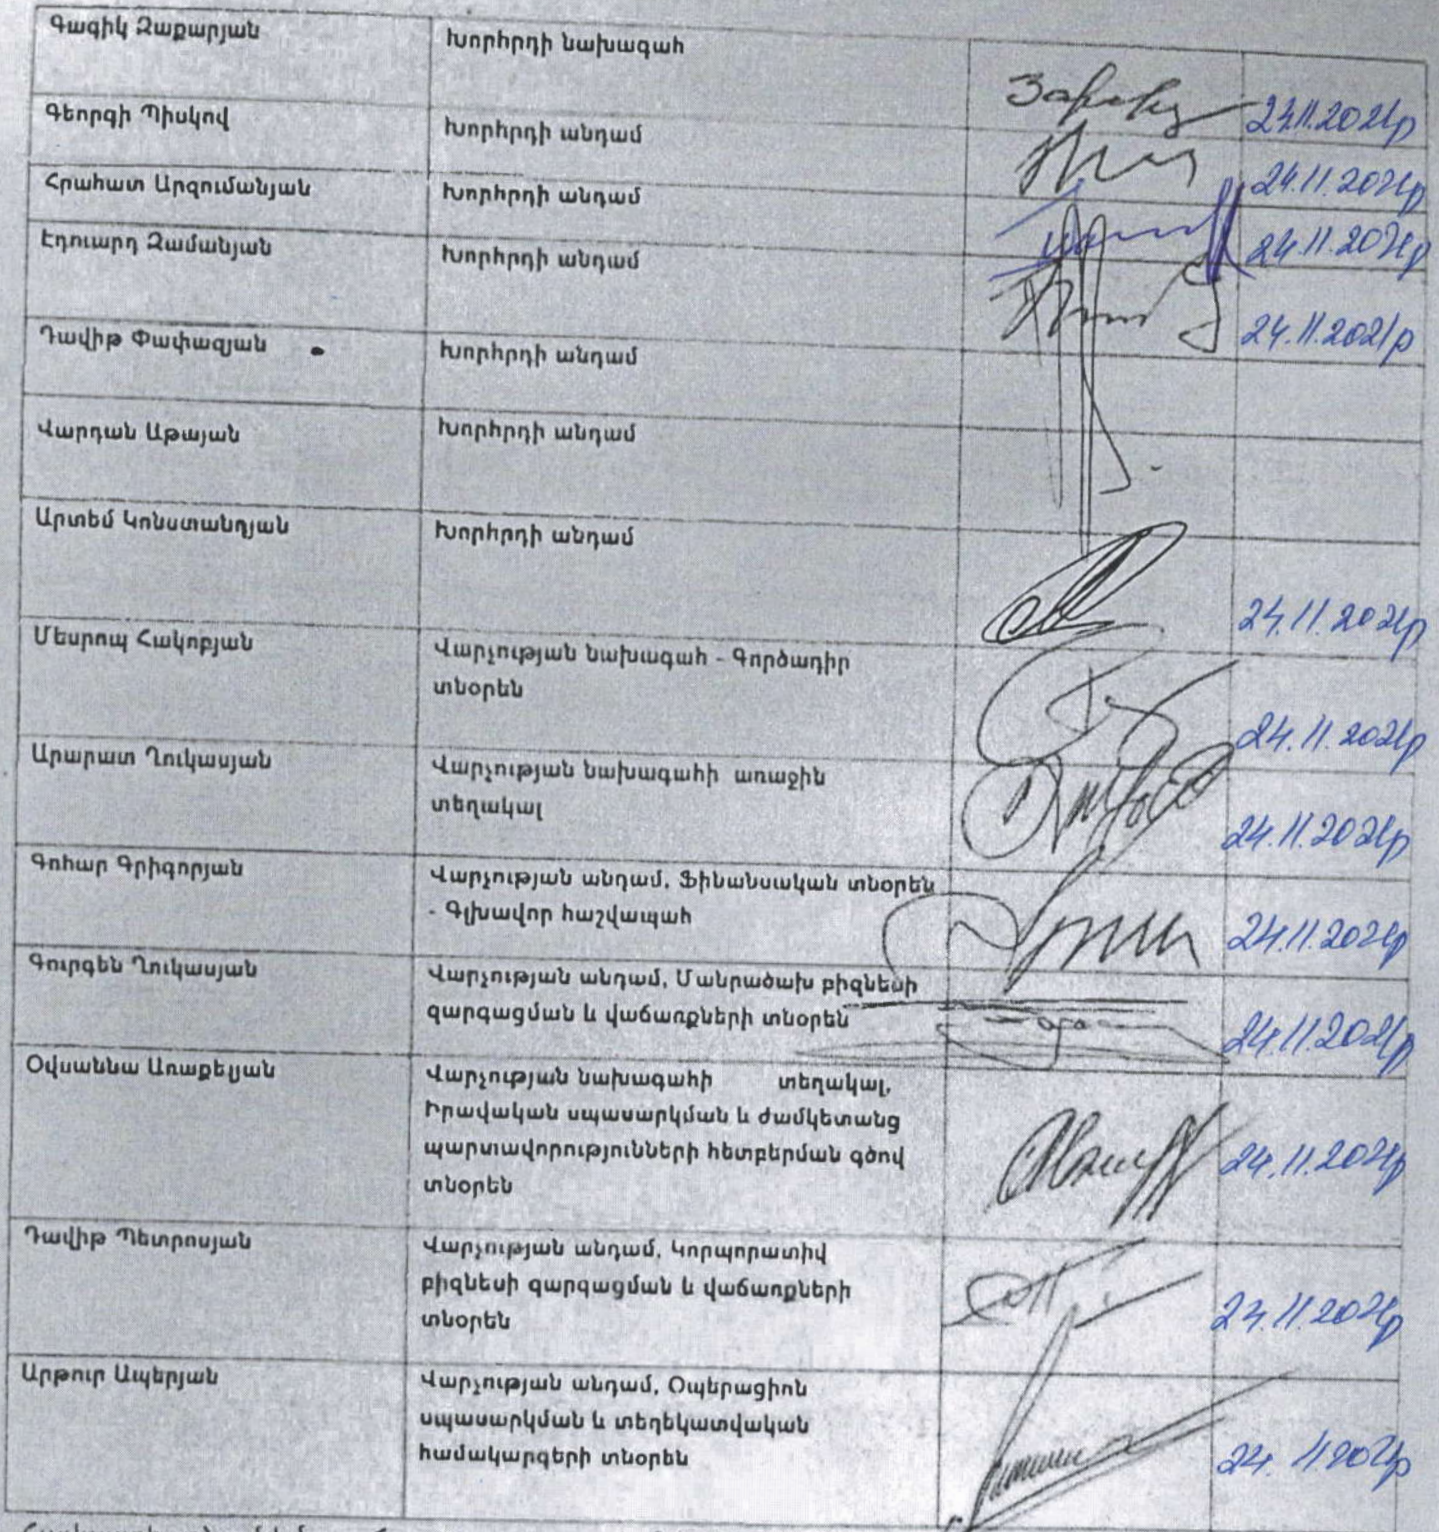 Գագիկ Զաքարյան
Խորհրդի նախագահ
24.11.2021թ
Գեորգի Պիսկով
Խորհրդի անդամ
24.11.2021թ
Հրահատ Արզումանյան
Խորհրդի անդամ
24.11.2021թ
Էդուարդ Զամանյան
Խորհրդի անդամ
24.11.2021թ
Դավիթ Փափազյան
Խորհրդի անդամ
Վարդան Աթայան
Խորհրդի անդամ
Արտեմ Կոնստանդյան
Խորհրդի անդամ
24.11.2021թ
Մեսրոպ Հակոբյան
Վարչության նախագահ - Գործադիր
տնօրեն
24.11.2021թ
Արարատ Ղուկասյան
Վարչության նախագահի առաջին
տեղակալ
24.11.2021թ
Գոհար Գրիգորյան
Վարչության անդամ, Ֆինանսական տնօրեն
- Գլխավոր հաշվապահ
24.11.2021թ
Գուրգեն Ղուկասյան
Վարչության անդամ, Մանրածախ բիզնեսի
զարգացման և վաճառքների տնօրեն
24.11.2021թ
Օվսաննա Առաքելյան
Վարչության նախագահի տեղակալ,
Իրավական սպասարկման և ժամկետանց
պարտավորությունների հետբերման գծով
տնօրեն
24.11.2021թ
Դավիթ Պետրոսյան
Վարչության անդամ, Կորպորատիվ
բիզնեսի զարգացման և վաճառքների
տնօրեն
24.11.2021թ
Արթուր Ապերյան
Վարչության անդամ, Օպերացիոն
սպասարկման և տեղեկատվական
համակարգերի տնօրեն
24.11.2021թ